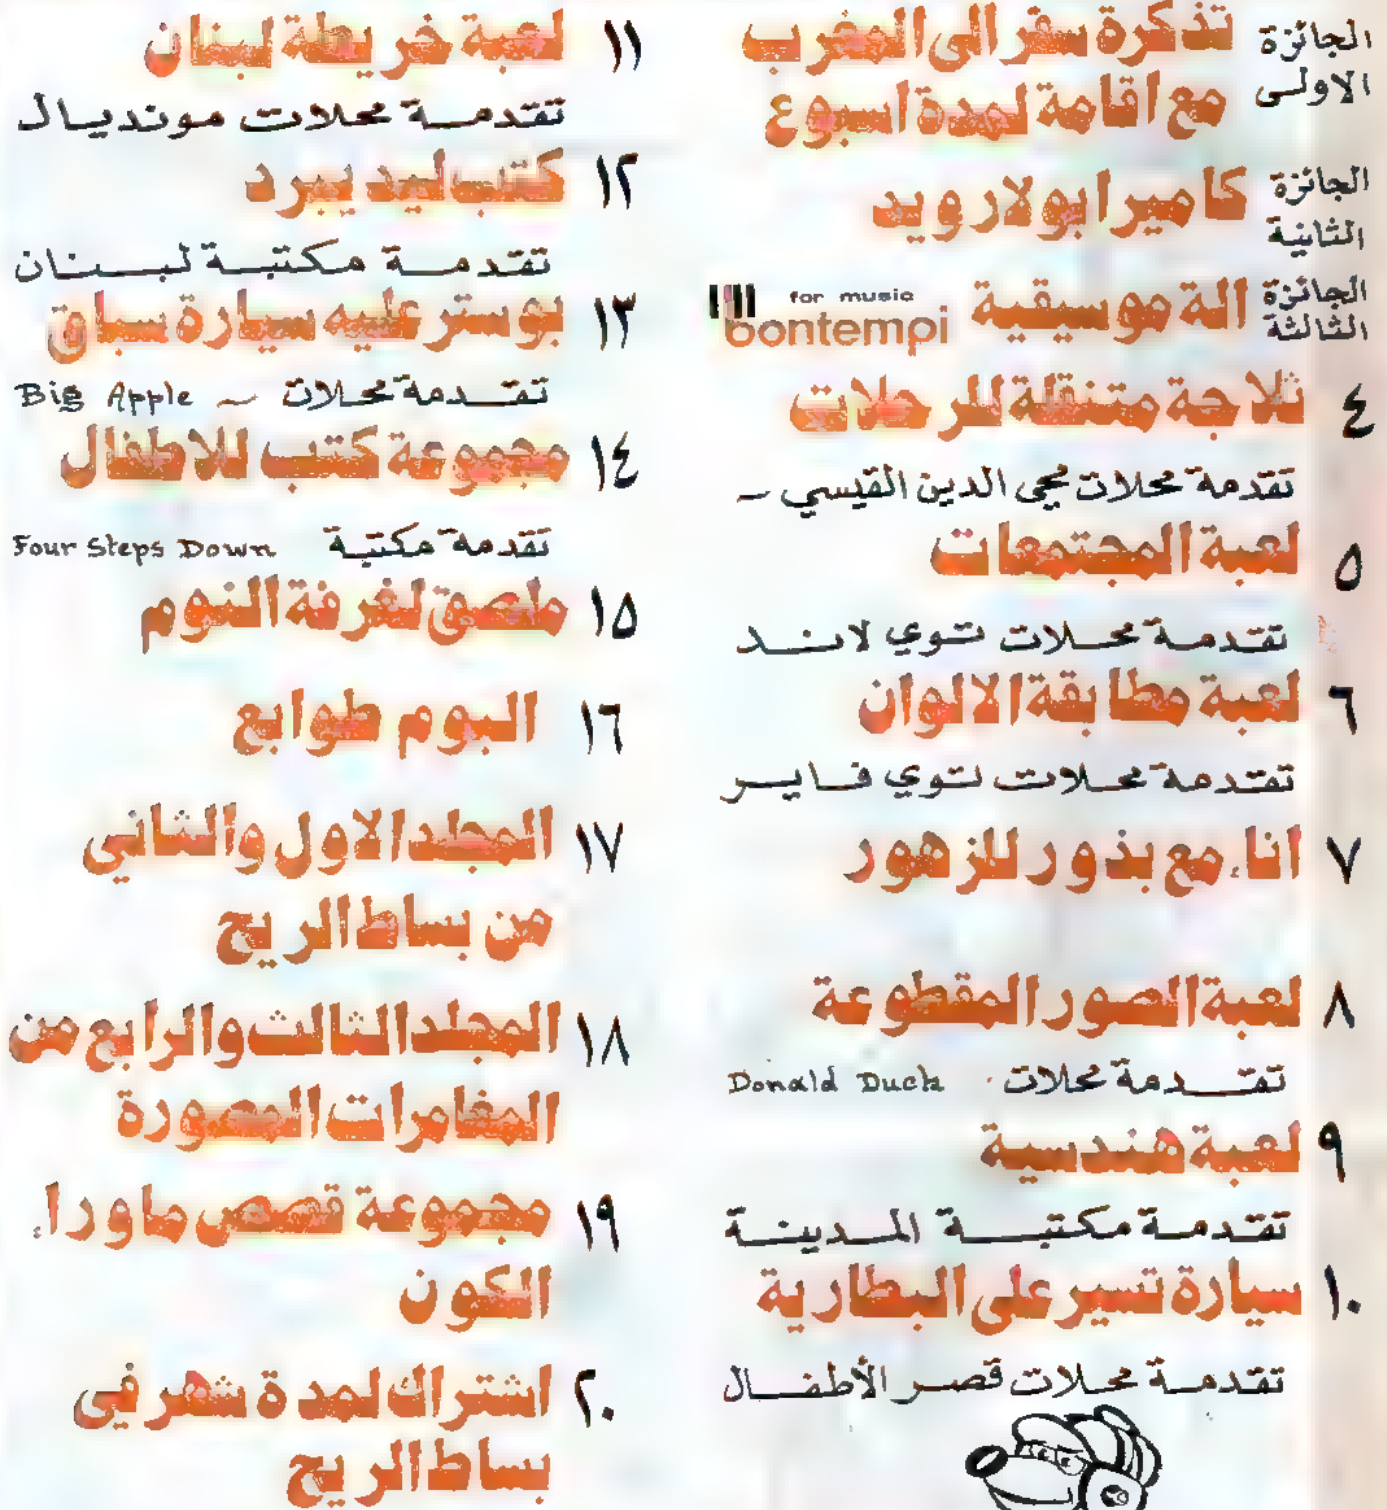 الجائزة الاولى تذكرة سفر الى المغرب
مع اقامة لمدة اسبوع
الجائزة الثانية كاميرا بولارويد
الجائزة الثالثة الة موسيقية for music bontempi
٤ ثلاجة متنقلة للرحلات
تقدمة محلات محي الدين القيسي
٥ لعبة المجتمعات
تقدمة محلات توي لاند
٦ لعبة مطابقة الالوان
تقدمة محلات توي فايبر
٧ اناء مع بذور للزهور
٨ لعبة الصور المقطوعة
تقدمة محلات Donald Duck
٩ لعبة هندسية
تقدمة مكتبة المدينة
١٠ سيارة تسير على البطارية
تقدمة محلات قصر الأطفال
١١ لعبة خريطة لبنان
تقدمة محلات مونديال
١٢ كتب ليديبرد
تقدمة مكتبة لبنان
١٣ بوستر عليه سيارة سباق
تقدمة محلات Big Apple
١٤ مجموعة كتب للاطفال
تقدمة مكتبة Four Steps Down
١٥ ملصق لغرفة النوم
١٦ البوم طوابع
١٧ المجلد الاول والثاني
من بساط الريح
١٨ المجلد الثالث والرابع من
المغامرات المصورة
١٩ مجموعة قصص ماوراء
الكون
٢٠ اشتراك لمدة شهر في
بساط الريح